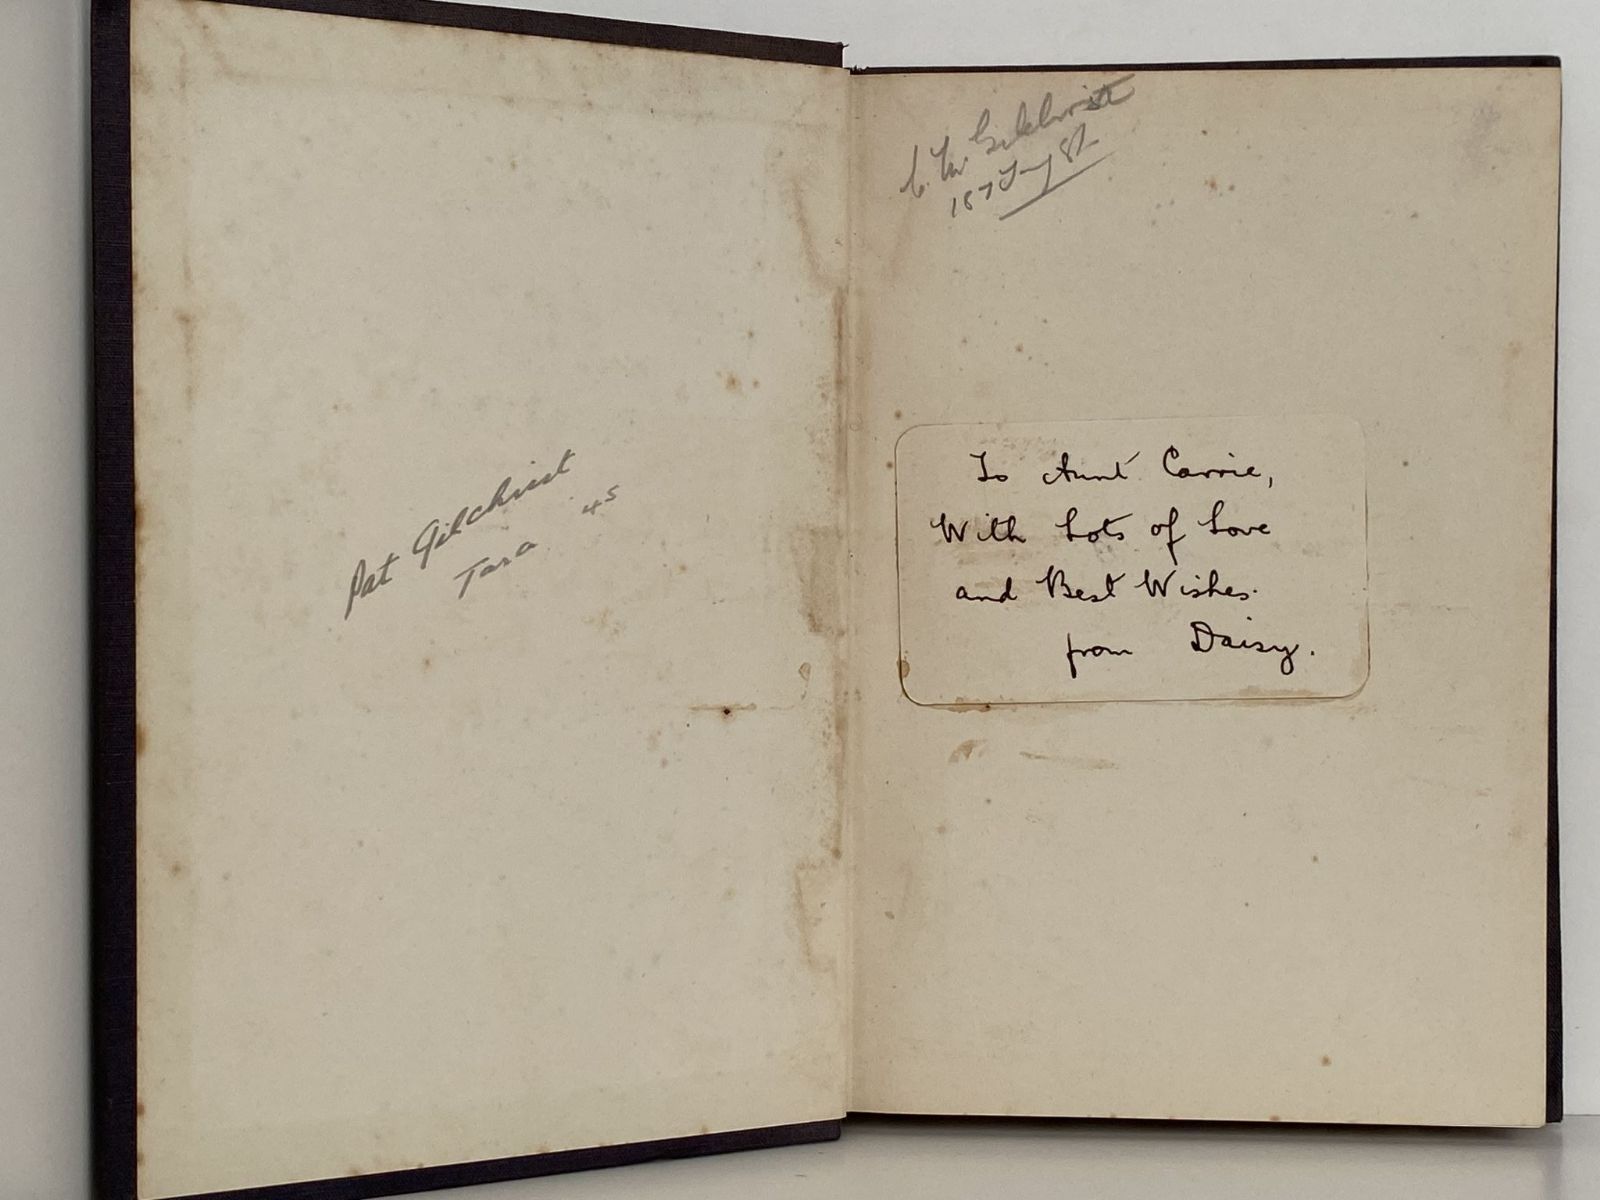 Pat Gilchrist
Tara 45
C. M. Gilchrist
187 Tay St
To Aunt Carrie,
With Lots of Love
and Best Wishes.
from Daisy.